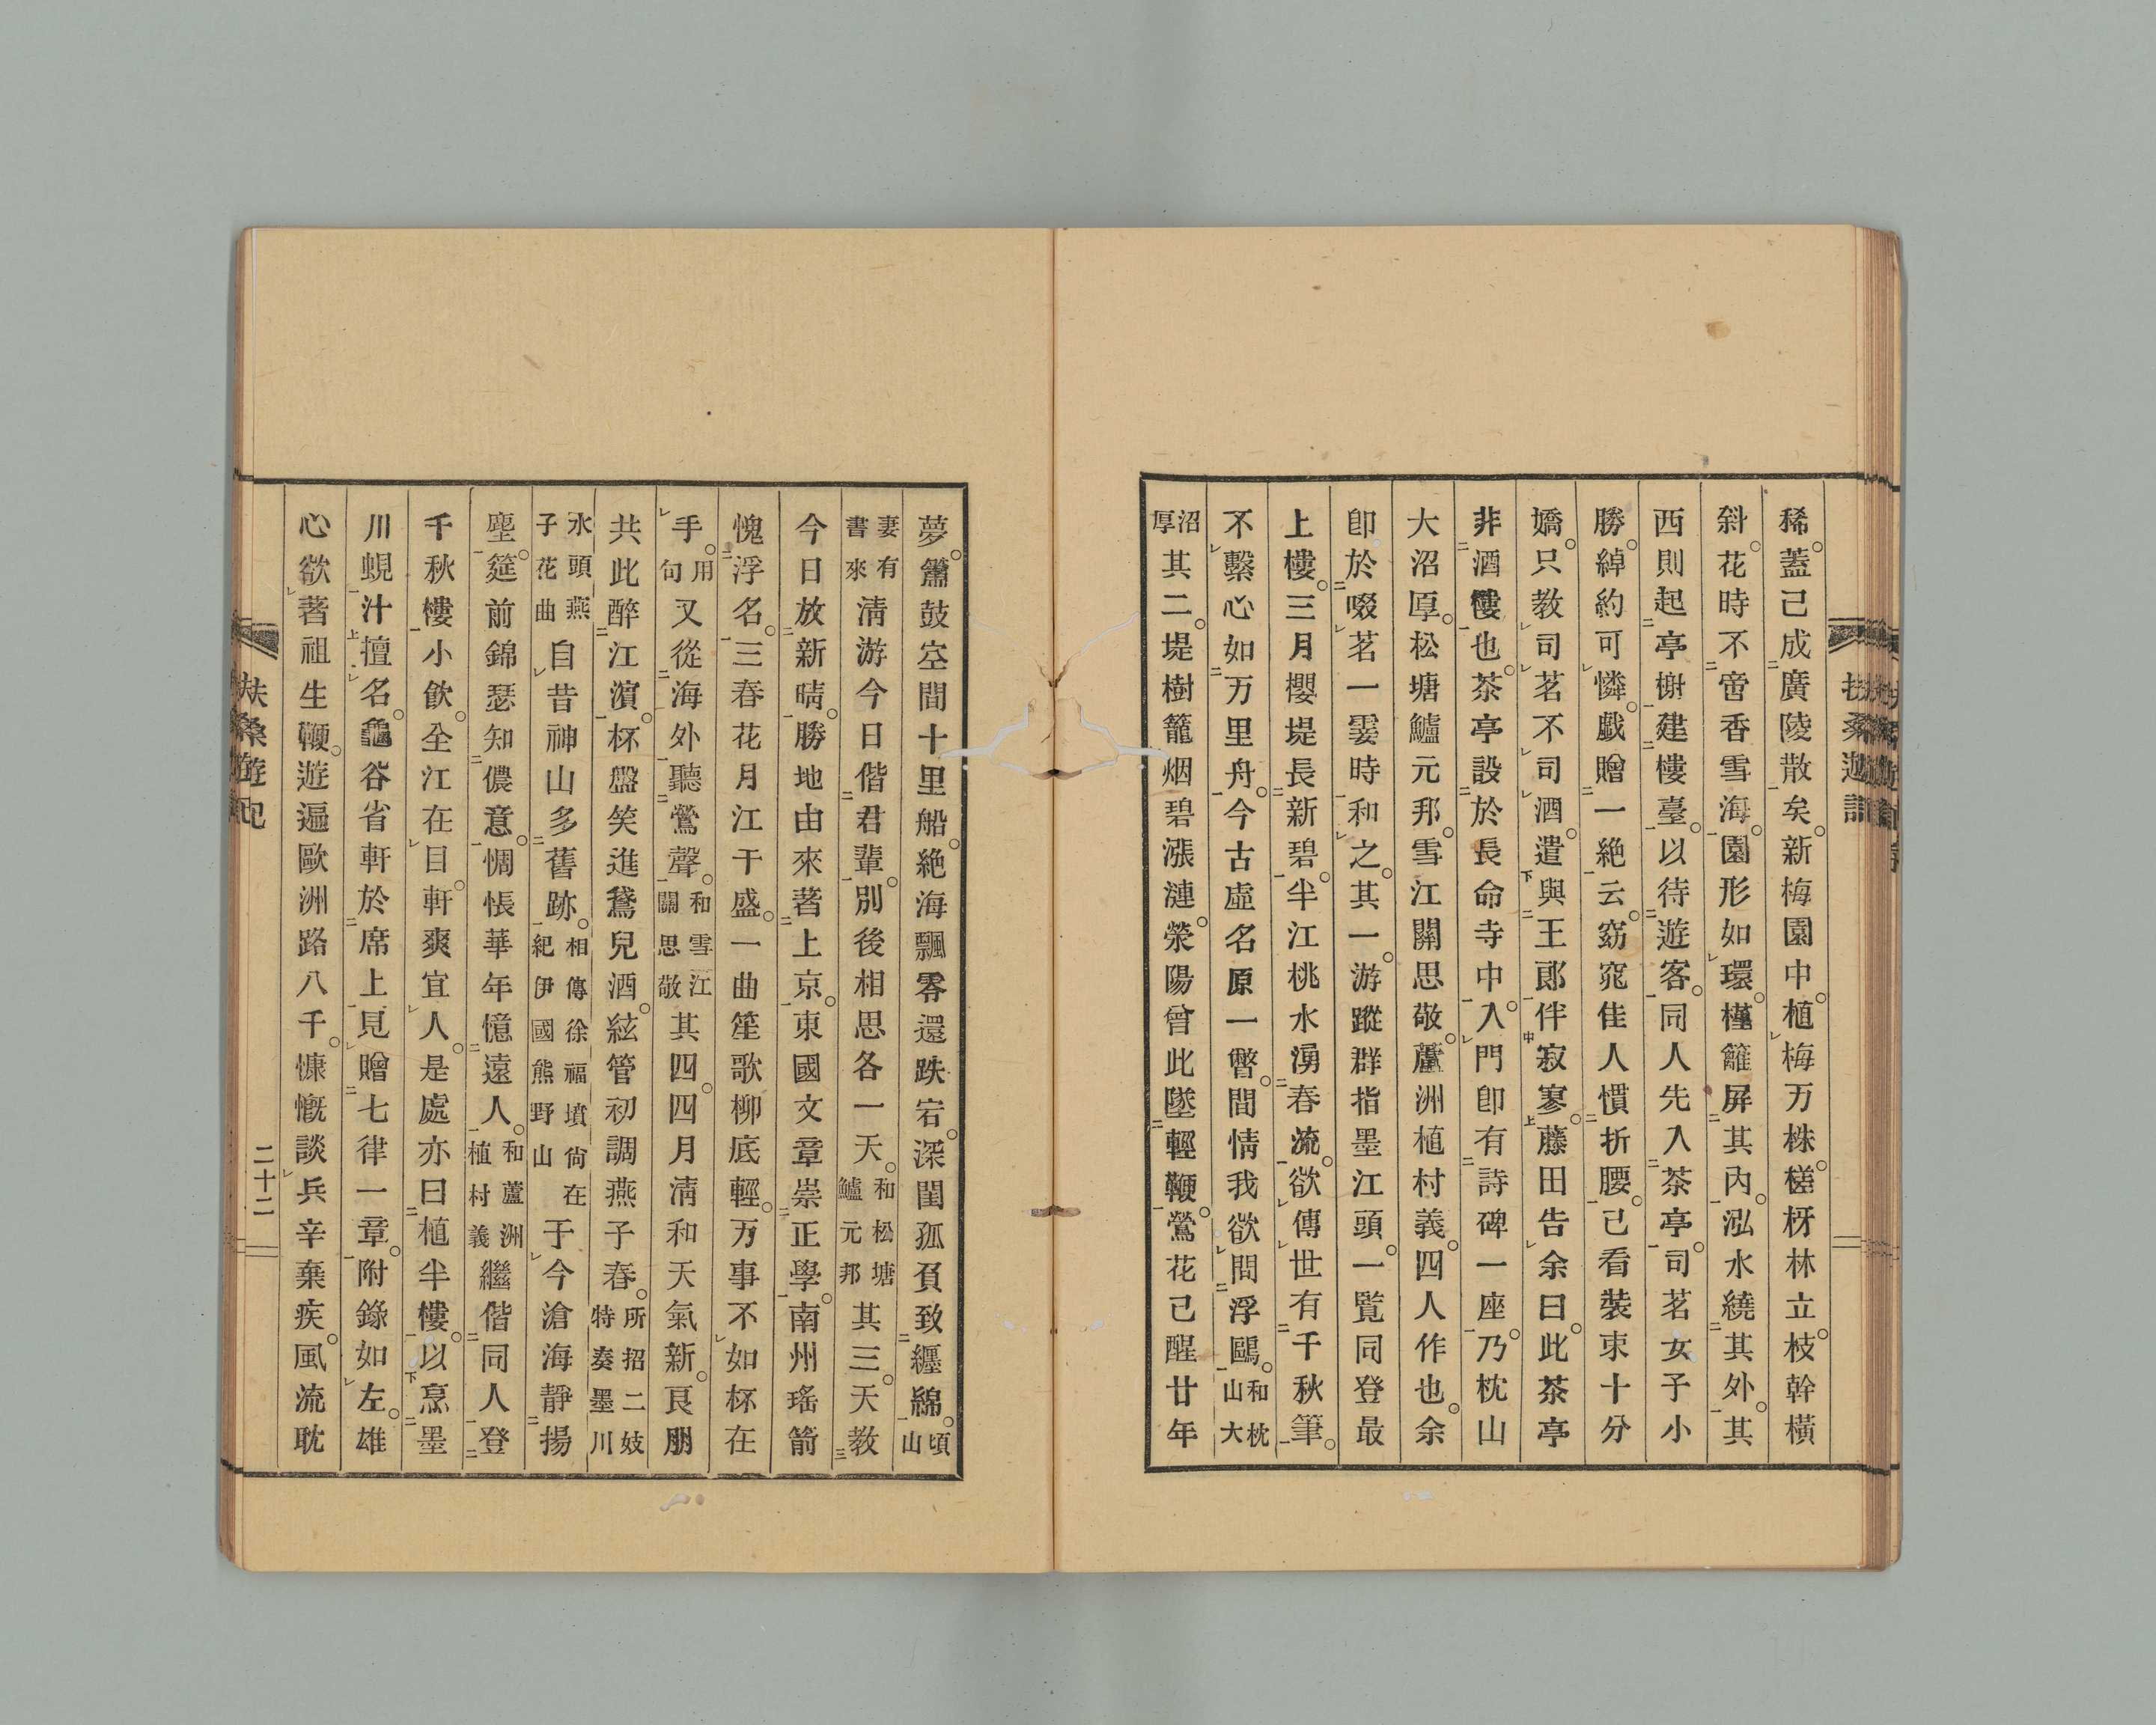 稀。蓋已成廣陵散矣。新梅園中。植梅万株。槎枒林立。枝幹橫
斜。花時不啻香雪海。園形如環。槿籬屏其內。泓水繞其外。其
西則起亭榭建樓臺。以待遊客。同人先入茶亭。司茗女子小
勝。綽約可憐。戲贈一絶云。窈窕佳人慣折腰。已看裝束十分
嬌。只教司茗不司酒。遣與王郞伴寂寥。藤田告余曰。此茶亭
非酒樓也。茶亭設於長命寺中。入門卽有詩碑一座。乃枕山
大沼厚。松塘鱸元邦。雪江關思敬。蘆洲植村義。四人作也。余
卽於啜茗一霎時和之。其一。游蹤群指墨江頭。一覧同登最
上樓。三月櫻堤長新碧。半江桃水湧春流。欲傳世有千秋筆。
不繫心如万里舟。今古虛名原一瞥。間情我欲問浮鷗。和枕山大
沼厚其二。堤樹籠烟碧漲漣。滎陽曾此墜輕鞭。鶯花已醒廿年
扶桑遊記
夢。簫鼓空間十里船。絶海飄零還跌宕。深閨孤負致纏綿。頃山
妻有書來淸游今日偕君輩。別後相思各一天。和松塘鱸元邦其三。天教
今日放新晴。勝地由來著上京。東國文章崇正學。南州瑤箭
愧浮名。三春花月江干盛。一曲笙歌柳底輕。万事不如杯在
手。用句又從海外聽鶯聲。和雪江關思敬其四。四月淸和天氣新。良朋
共此醉江濱。杯盤笑進鵞兒酒。絃管初調燕子春。所招二妓特奏墨川
水頭燕子花曲自昔神山多舊跡。相傳徐福墳尙在紀伊國熊野山于今滄海靜揚
塵。筵前錦瑟知儂意。惆悵華年憶遠人。和蘆洲植村義繼偕同人登
千秋樓小飮。全江在目。軒爽宜人。是處亦曰植半樓。以烹墨
川蜆汁擅名。龜谷省軒於席上見贈七律一章。附錄如左。雄
心欲著祖生鞭。遊遍歐洲路八千。慷慨談兵辛棄疾。風流耽
扶桑遊記
二十二